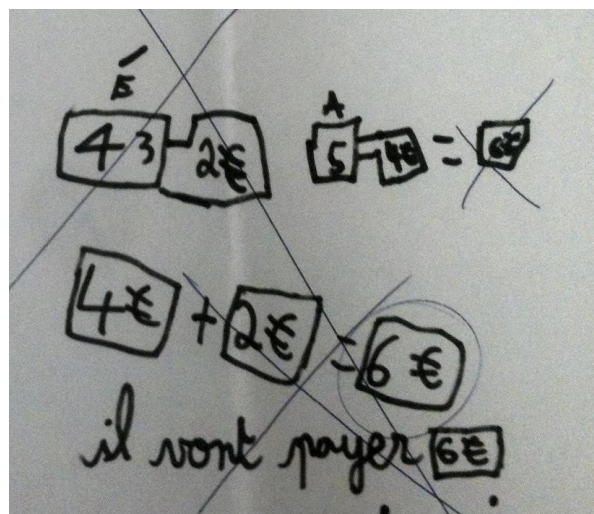 É A
43 2€ 5 4€ = 6€
4€ + 2€ = 6€
il vont payer 6€